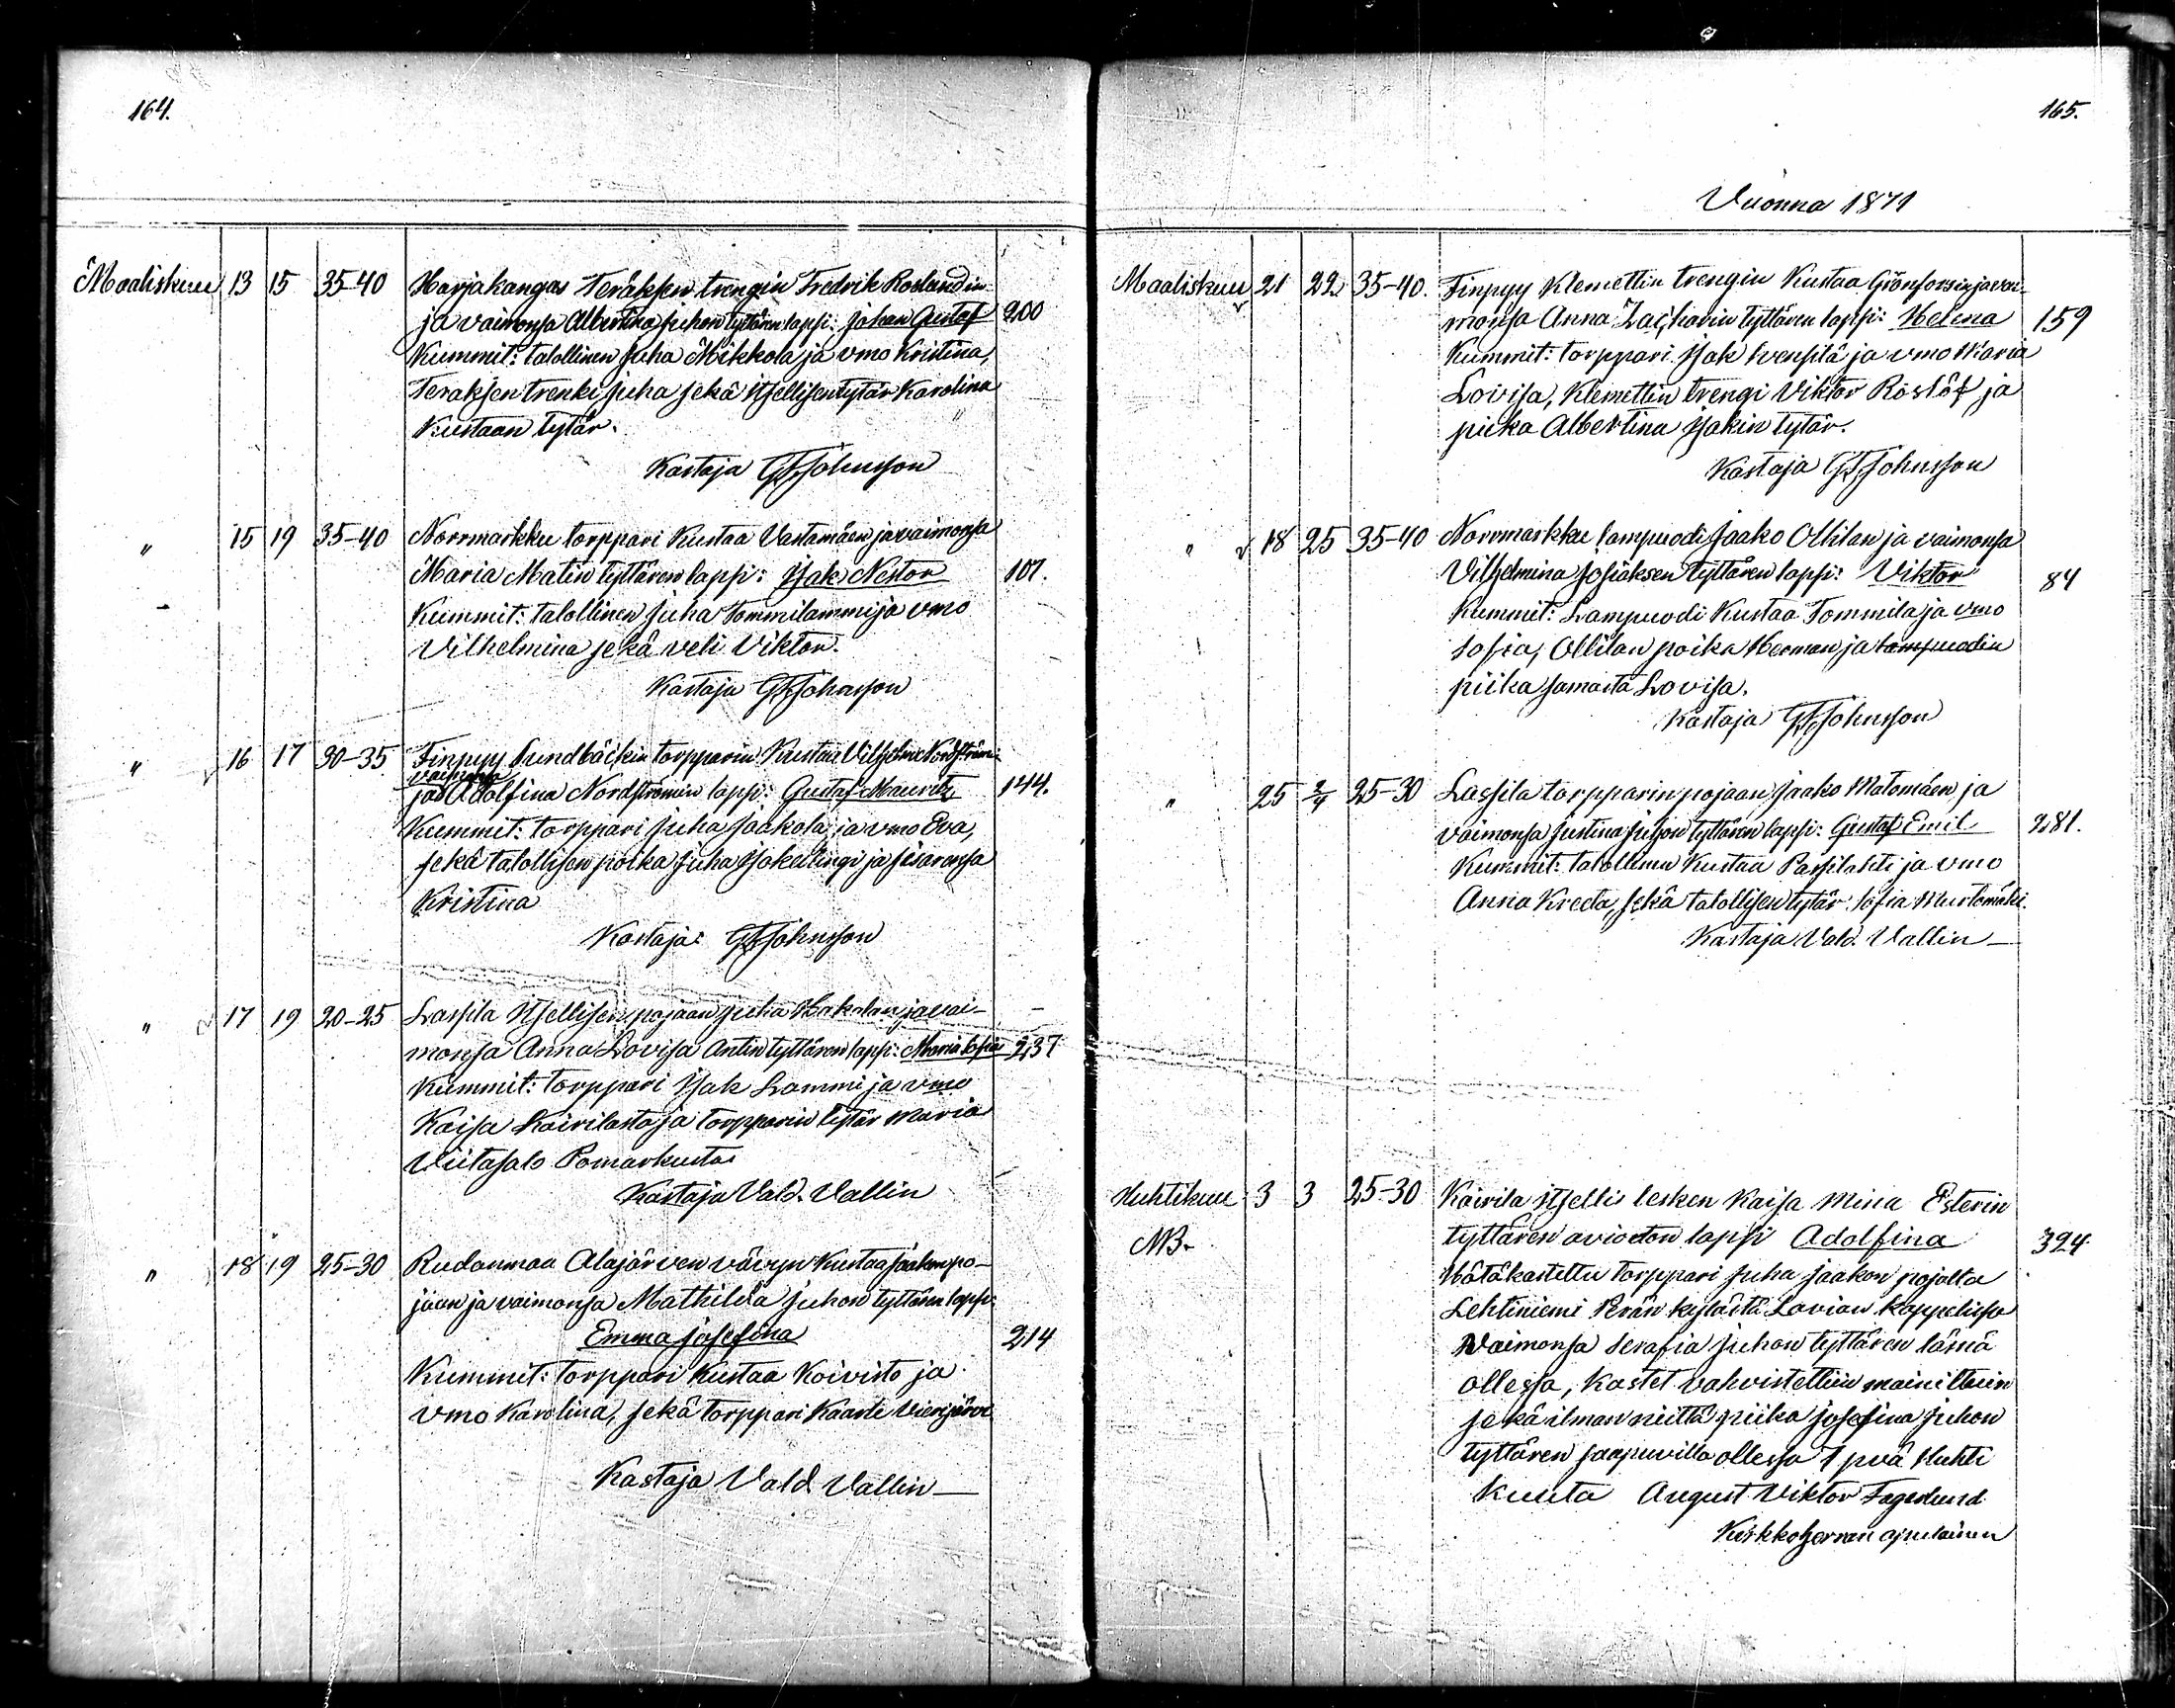 164.
Maaliskuu 13 15 35-40 Harjakangas Teräksen trengin Fredrik Roslundin
ja vaimonsa Albertina Juhon tyttären lapsi: Johan Gustaf 200
Kummit: talollinen Juha Mikkola ja vmo Kristina,
Teraksen trenki Juha sekä itsellisen tytär Karolina
Kustaan tytär.
Kastaja G F Johnsson
" 15 19 35-40 Norrmarkku torppari Kustaa Vastamäen ja vaimonsa
Maria Matin tyttären lapsi: Isak Nestor 107.
Kummit: talollinen Juha Tommilammi ja vmo
Vilhelmina sekä veli Viktor.
Kastaja G F Johnsson
" 16 17 30-35 Finpyy Sundbäckin torpparin Kustaa Vilhelm Nordströmin
vaimonsa
ja Adolfina Nordströmin lapsi: Gustaf Mauritz 144.
Kummit: torppari Juha Jaakola ja vmo Eva,
sekä talollisen poika Juha Isakellingi ja sisarensa
Kristina
Kastaja: G F Johnsson
" 17 19 20-25 Lassila Itsellisen pojaan Juha Hakalan ja vai-
monsa Anna Lovisa Antin tyttären lapsi: Maria Sofia 237
Kummit: torppari Isak Lammi ja vmo
Kaisa Kairilasta ja torpparin tytär Maria
Viitasalo Pomarkusta
Kastaja Vald. Vallin
" 18 19 25-30 Rudanmaa Alajärven vävyn Kustaa Jaakon po-
jaan ja vaimonsa Mathilda Juhon tyttären lapsi
Emma Josefina 214
Kummit: torppari Kustaa Koivisto ja
vmo Karolina, sekä torppari Kaarle Vierijärvi
Kastaja Vald Vallin
165.
Vuonna 1871
Maaliskuu 21 22 35-40. Finpyy Klemettin trengin Kustaa Grönforsin ja vai-
monsa Anna Zacharin tyttären lapsi: Helena 159
Kummit: torppari Isak Svensilä ja vmo Maria
Lovisa, Klemettin trengi Viktor Roslöf ja
piika Albertina Isakin tytär.
Kastaja G F Johnsson
" 18 25 35-40 Norrmarkku lampuodi Jaako Ollilan ja vaimonsa
Vilhelmina Josiaksen tyttären lapsi: Viktor 84
Kummit: Lampuodi Kustaa Tommila ja vmo
Sofia, Ollilan poika Herman ja lampuodin
piika samasta Lovisa.
Kastaja G F Johnsson
" 25 2/4 25-30 Lassila torpparin pojaan Jaako Matomäen ja
vaimonsa Justina Juhon tyttären lapsi: Gustaf Emil 281.
Kummit: talollinen Kustaa Passilahti ja vmo
Anna Kreeta, sekä talollisen tytär Sofia Mustamäki.
Kastaja Vald. Vallin
Huhtikuu 3 3 25-30 Kairila itsellis lesken Kaisa Mina Esterin
NB. tyttären avioton lapsi Adolfina 324
Hätäkastettu torppari Juha Jaakon pojalta
Lehtiniemi Perän kylästä Lavian kappelissa
Vaimonsa Serafia Juhon tyttären läsnä
ollessa, kastet vahvistettiin mainittuin
sekä ilman niittä piika Josefina Juhon
tyttären saapuvilla ollessa 7 pvä Huhti
kuuta August Viktor Fagerlund
Kirkkoherran apulainen